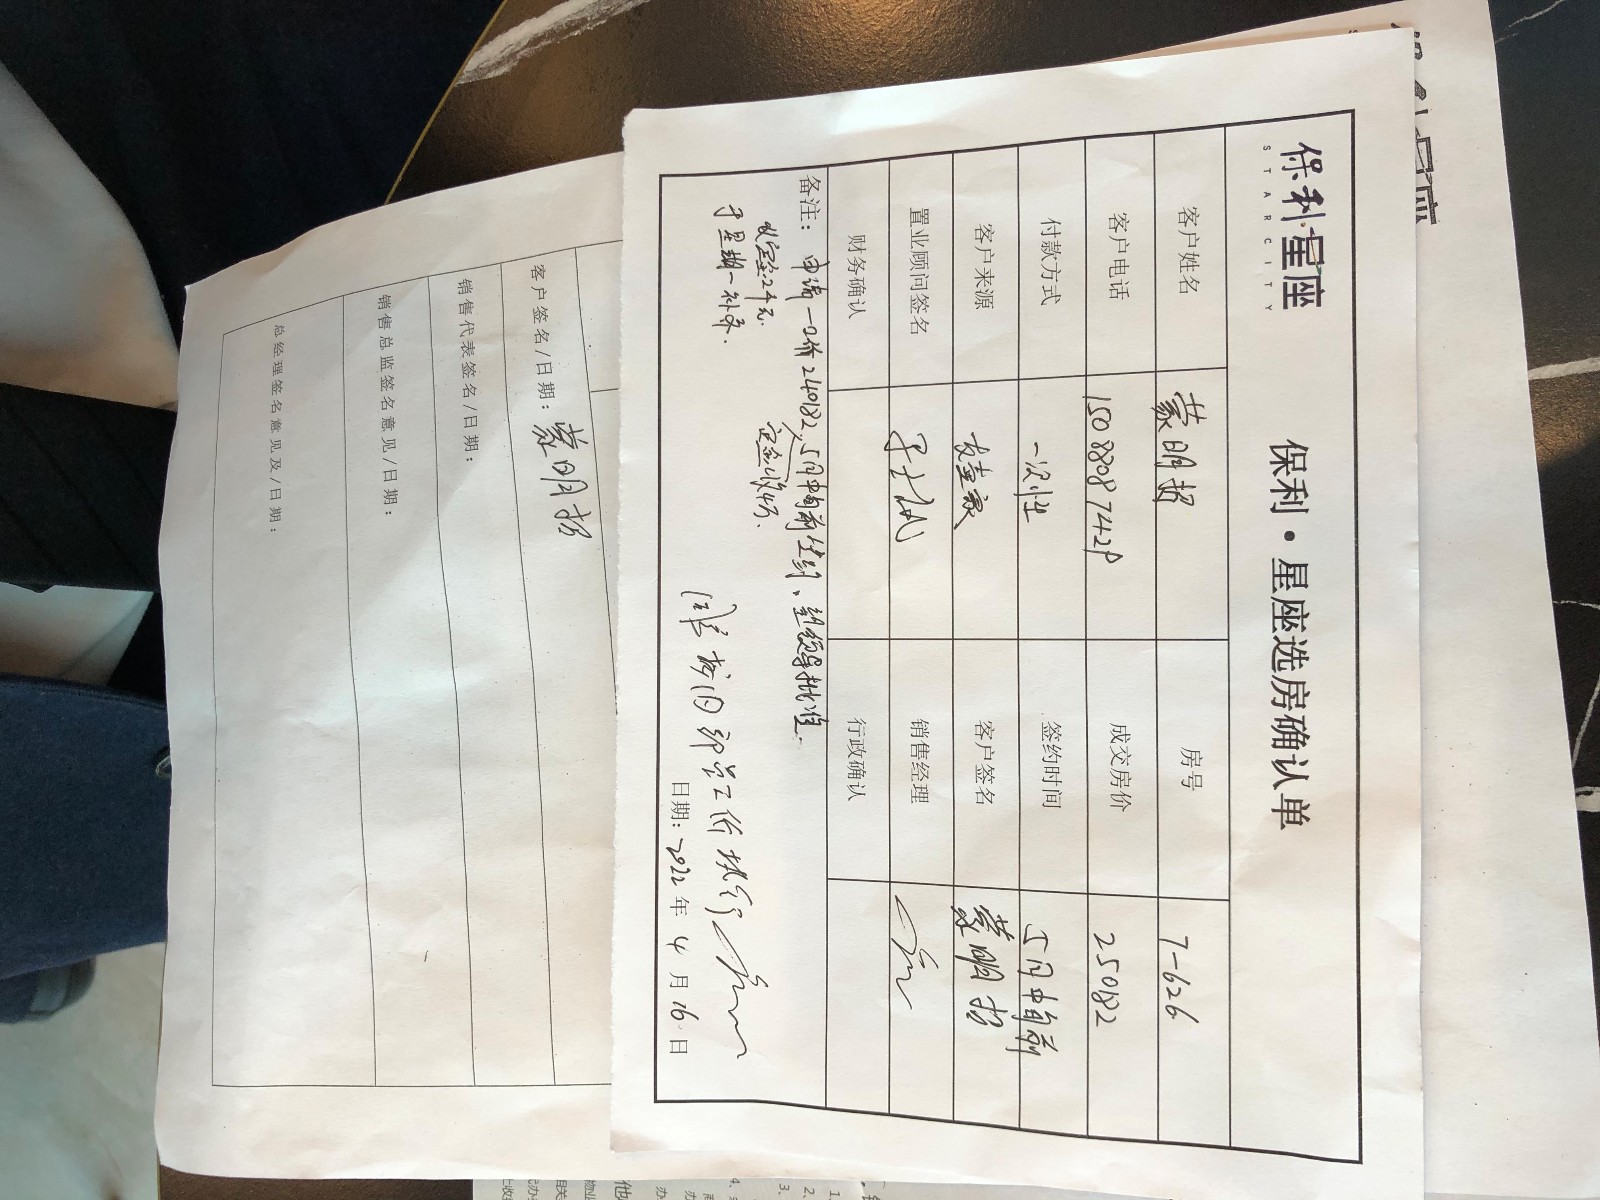 保利星座
STARCITY
保利·星座选房确认单
客户姓名 蒙明招 房号 7-626
客户电话 成交房价 250182
付款方式 一次性 签约时间 5月中旬前
客户来源 签约时间
客户签名 蒙明招
置业顾问签名 销售经理
财务确认 行政确认
备注：申请一口价240182，5月中旬前签约、望领导批准.
定金收4万.
收定金2千元.
于星期一补齐.
日期：2022年4月16日
客户签名/日期：蒙明招
销售代表签名/日期：
销售总监签名意见/日期：
总经理签名意见及/日期：